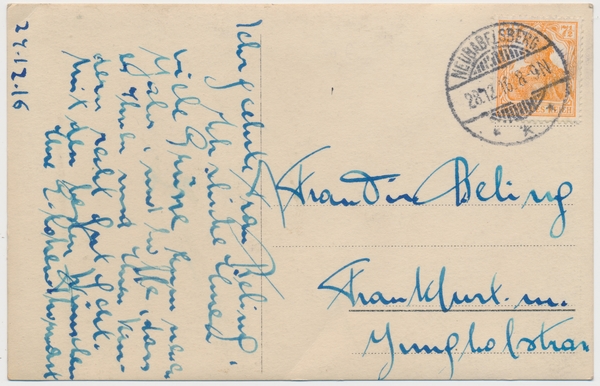 27.12.16
Sehr geehrte Frau Beling!
Ich sende Ihnen
viele Grüße zum neuen
Jahr, und hoffe, dass
es Ihnen und Ihren Kin-
dern recht gut geht.
Mit den besten Wünschen
Ihre
NEUBABELSBERG
28.12.16. 8-9 N.
7½
Frau Dir Beling
Frankfurt. m.
Junghofstran